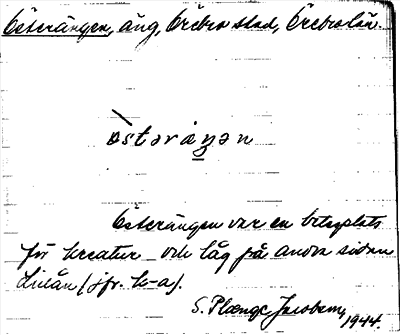 Österängen, äng, Örebro stad, Örebro län.
östəräŋən
Österängen var en betesplats
för kreatur och låg på andra sidan
Lillån (jfr. k-a).
S. Plænge Jacobson, 1944.